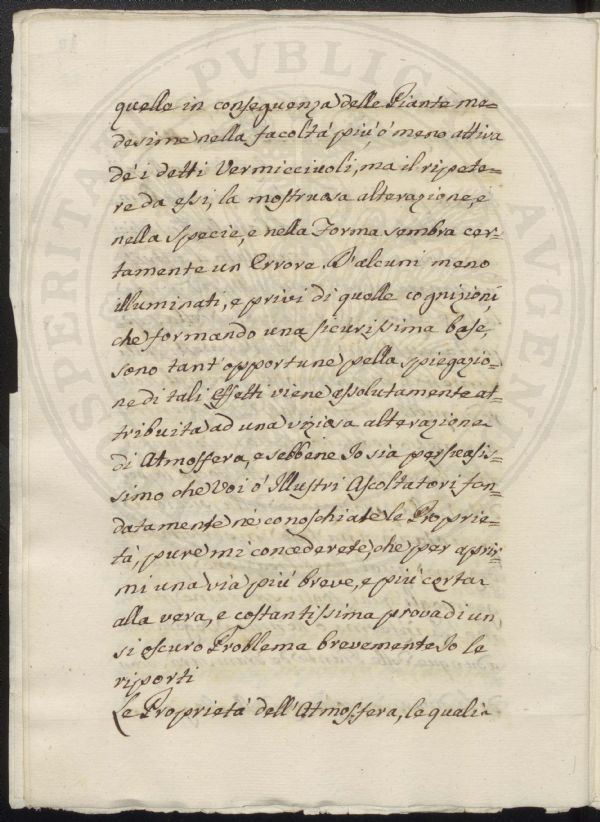 quelle in conseguenza delle Piante me=
desime nella facoltà più, ò meno attiva
dé i detti Vermicciuoli, ma il ripete=
re da essi, la mostruosa alterazione, e
nella specie, e nella Forma sembra cer=
tamente un Errore. D'alcuni meno
illuminati, e privi di quelle cognizioni,
che formando una sicurissima base,
sono tant'opportune pella spiegazio=
ne di tali Effetti viene assolutamente at=
tribuita ad una viziosa alterazione
di Atmosfera, e sebbene Io sia persuasis=
simo che Voi ò Illustri Ascoltatori fon=
datamente né conoschiate le Proprie=
tà, pure mi concederete, che per aprir=
mi una via più breve, e più certa
alla vera, e costantissima prova di un
si oscuro Problema brevemente Io le
riporti
Le Proprietà dell'Atmosfera, le quali
PVBLICA
AVGENT
PROSPERITA